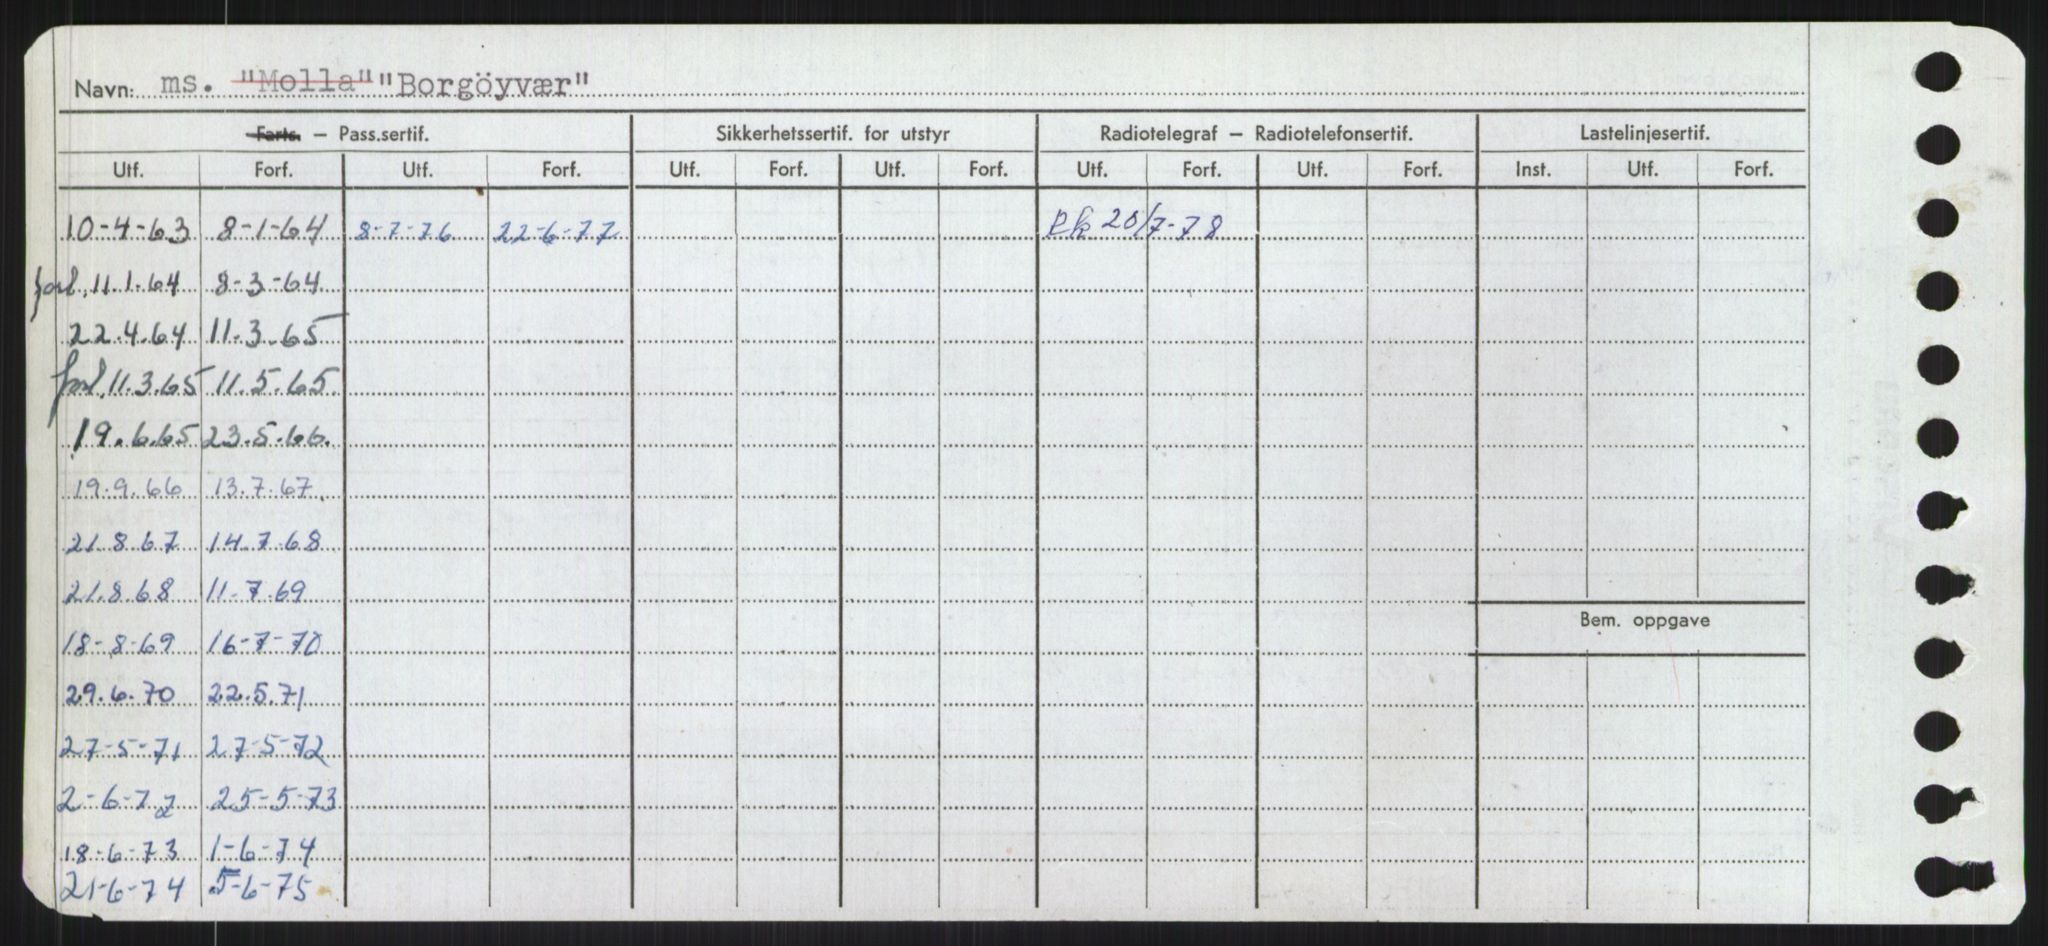 Navn: ms. "Molla" "Borgöyvær"
Farts. — Pass.sertif. Sikkerhetssertif. for utstyr Radiotelegraf — Radiotelefonsertif. Lastelinjesertif.
Utf. Forf. Utf. Forf. Utf. Forf. Utf. Forf. Utf. Forf. Utf. Forf. Inst. Utf. Forf.
10-4-63 8-1-64 8-7-76 22-6-77 Rk 20/7-78
forl. 11.1.64 8-3-64
22.4.64 11.3.65
forl. 11.3.65 11.5.65.
19.6.65 23.5.66.
19.9.66 13.7.67
21.8.67 14.7.68
21.8.68 11.7.69
Bem. oppgave
18-8-69 16-7-70
29.6.70 22.5.71
27-5-71 27-5-72
2-6-72 25-5-73
18-6-73 1-6-74
21-6-74 5-6-75